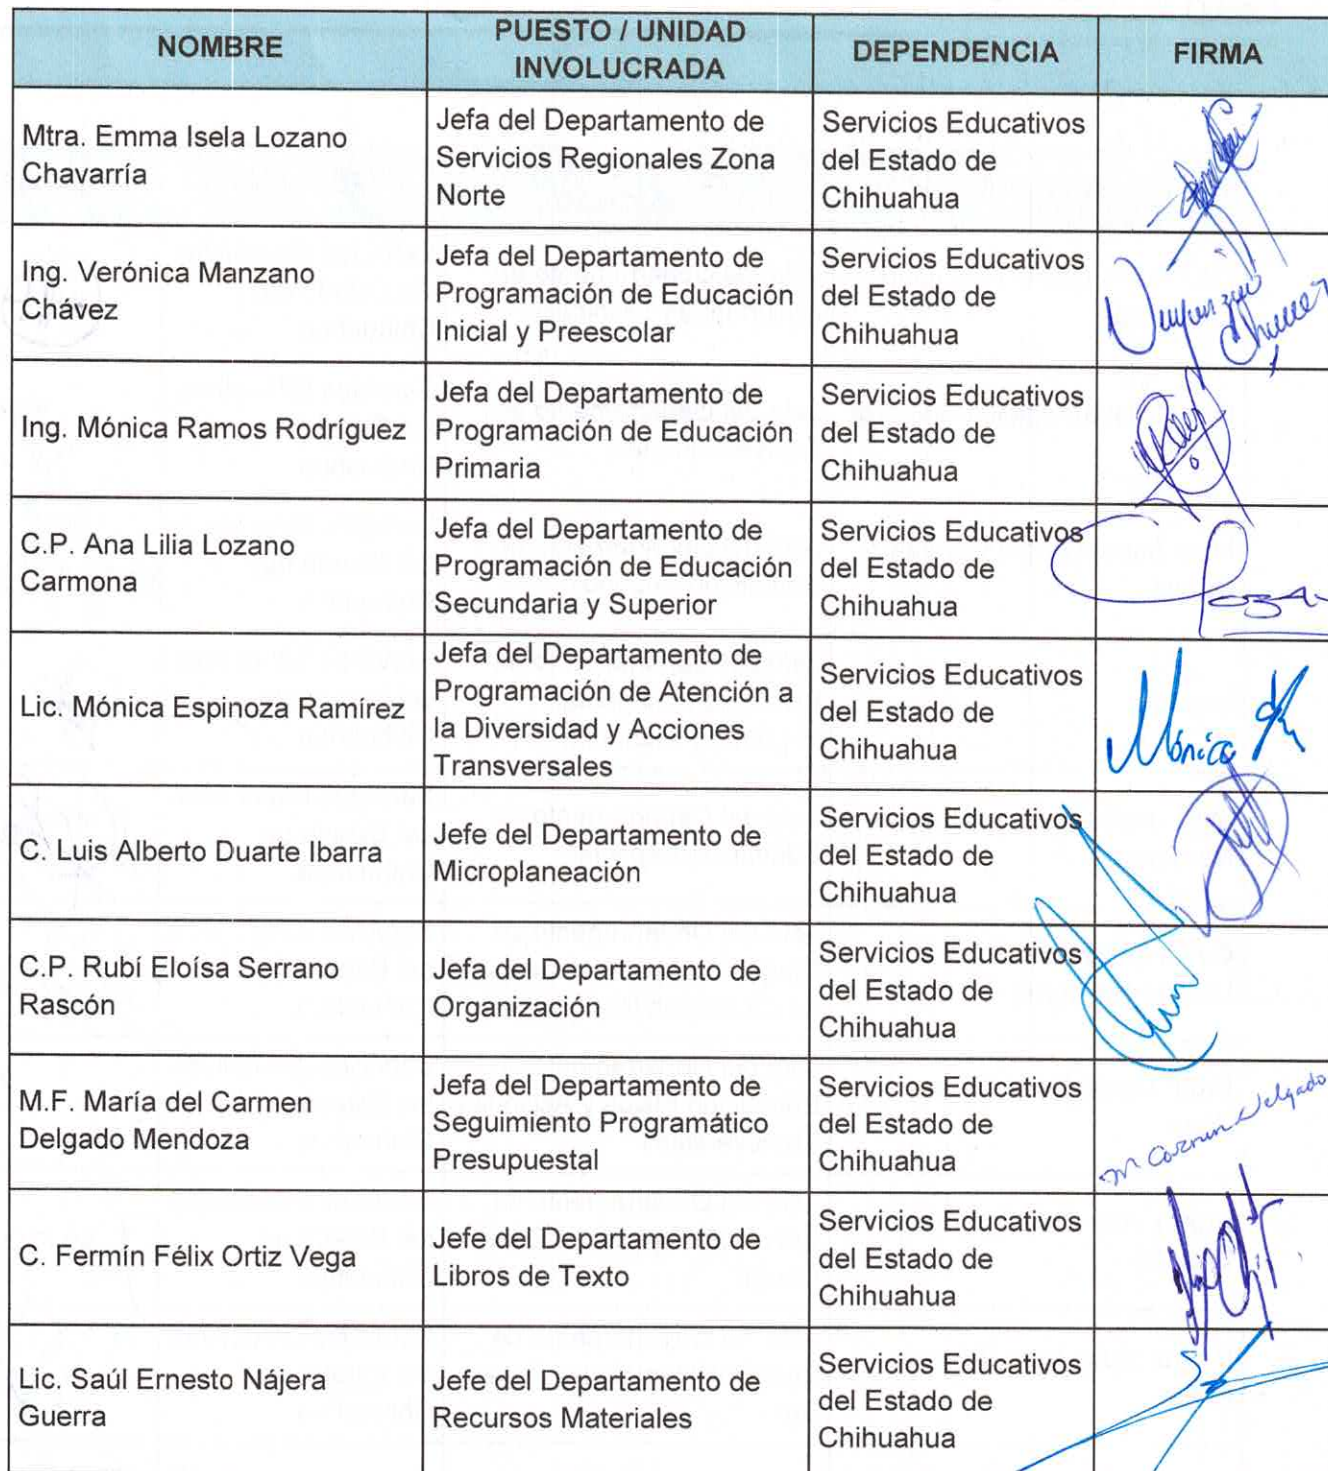 NOMBRE
PUESTO / UNIDAD
INVOLUCRADA
DEPENDENCIA
FIRMA
Mtra. Emma Isela Lozano
Chavarría
Jefa del Departamento de
Servicios Regionales Zona
Norte
Servicios Educativos
del Estado de
Chihuahua
Ing. Verónica Manzano
Chávez
Jefa del Departamento de
Programación de Educación
Inicial y Preescolar
Servicios Educativos
del Estado de
Chihuahua
Ing. Mónica Ramos Rodríguez
Jefa del Departamento de
Programación de Educación
Primaria
Servicios Educativos
del Estado de
Chihuahua
C.P. Ana Lilia Lozano
Carmona
Jefa del Departamento de
Programación de Educación
Secundaria y Superior
Servicios Educativos
del Estado de
Chihuahua
Lic. Mónica Espinoza Ramírez
Jefa del Departamento de
Programación de Atención a
la Diversidad y Acciones
Transversales
Servicios Educativos
del Estado de
Chihuahua
Mónica
C. Luis Alberto Duarte Ibarra
Jefe del Departamento de
Microplaneación
Servicios Educativos
del Estado de
Chihuahua
C.P. Rubí Eloísa Serrano
Rascón
Jefa del Departamento de
Organización
Servicios Educativos
del Estado de
Chihuahua
M.F. María del Carmen
Delgado Mendoza
Jefa del Departamento de
Seguimiento Programático
Presupuestal
Servicios Educativos
del Estado de
Chihuahua
M Carmen Delgado
C. Fermín Félix Ortiz Vega
Jefe del Departamento de
Libros de Texto
Servicios Educativos
del Estado de
Chihuahua
Lic. Saúl Ernesto Nájera
Guerra
Jefe del Departamento de
Recursos Materiales
Servicios Educativos
del Estado de
Chihuahua